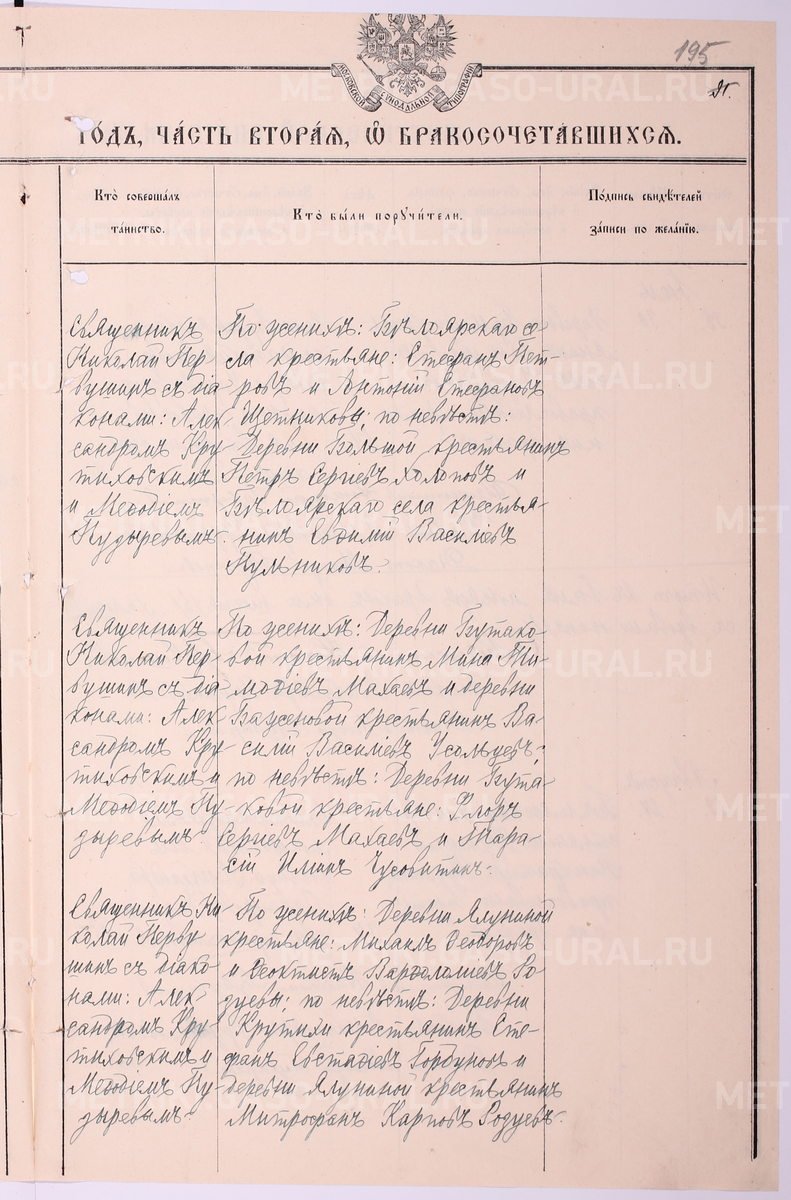 195
МОСКОВСКОЙ СѴНОДАЛЬНОЙ ТИПОГРАФІИ
го́дъ, ча́сть втора́ѧ, ѽ бракосочета́вшихсѧ.
Кто̀ соверша́лъ
та́инство.
Кто̀ бы́ли порꙋчи́тели.
По́дпись свидѣ́телей
за́писи по жела́нїю.
Священникъ
Николай Пер
вушинъ съ діа
конами: Алек
сандромъ Кру
тиховскимъ
и Меѳодіемъ
Пудыревымъ.
По женихѣ: Бѣлоярскаго се
ла крестьяне: Стефанъ Пет-
ровъ и Антоній Стефановъ
Щетниковы; по невѣстѣ:
Деревни Большой крестьянинъ
Петръ Сергіевъ Холоповъ и
Бѣлоярскаго села крестья-
нинъ Евѳимій Василіевъ
Пульниковъ.
Священникъ
Николай Пер
вушинъ съ діа
конами: Алек
сандромъ Кру
тиховскимъ и
Меѳодіемъ Пу
дыревымъ.
По женихѣ: Деревни Бутако
вой крестьянинъ Мина Ти
моѳіевъ Махаевъ и деревни
Баженовой крестьянинъ Ва-
силій Василіевъ Усольцевъ;
по невѣстѣ: Деревни Бута
ковой крестьяне: Флоръ
Сергіевъ Махаевъ и Тара-
сій Илиинъ Чусовитинъ.
Священникъ Ни
колай Перву
шинъ съ діако
нами: Алек-
сандромъ Кру-
тиховскимъ и
Меѳодіемъ Пу-
дыревымъ.
По женихѣ: Деревни Ялуниной
крестьяне: Михаилъ Ѳеодоровъ
и Ѳеоктистъ Варѳоломіевъ Ро
дуевы; по невѣстѣ: Деревни
Крутихи крестьянинъ Сте-
фанъ Евстафіевъ Горбуновъ и
деревни Ялуниной крестьянинъ
Митрофанъ Карповъ Родуевъ.